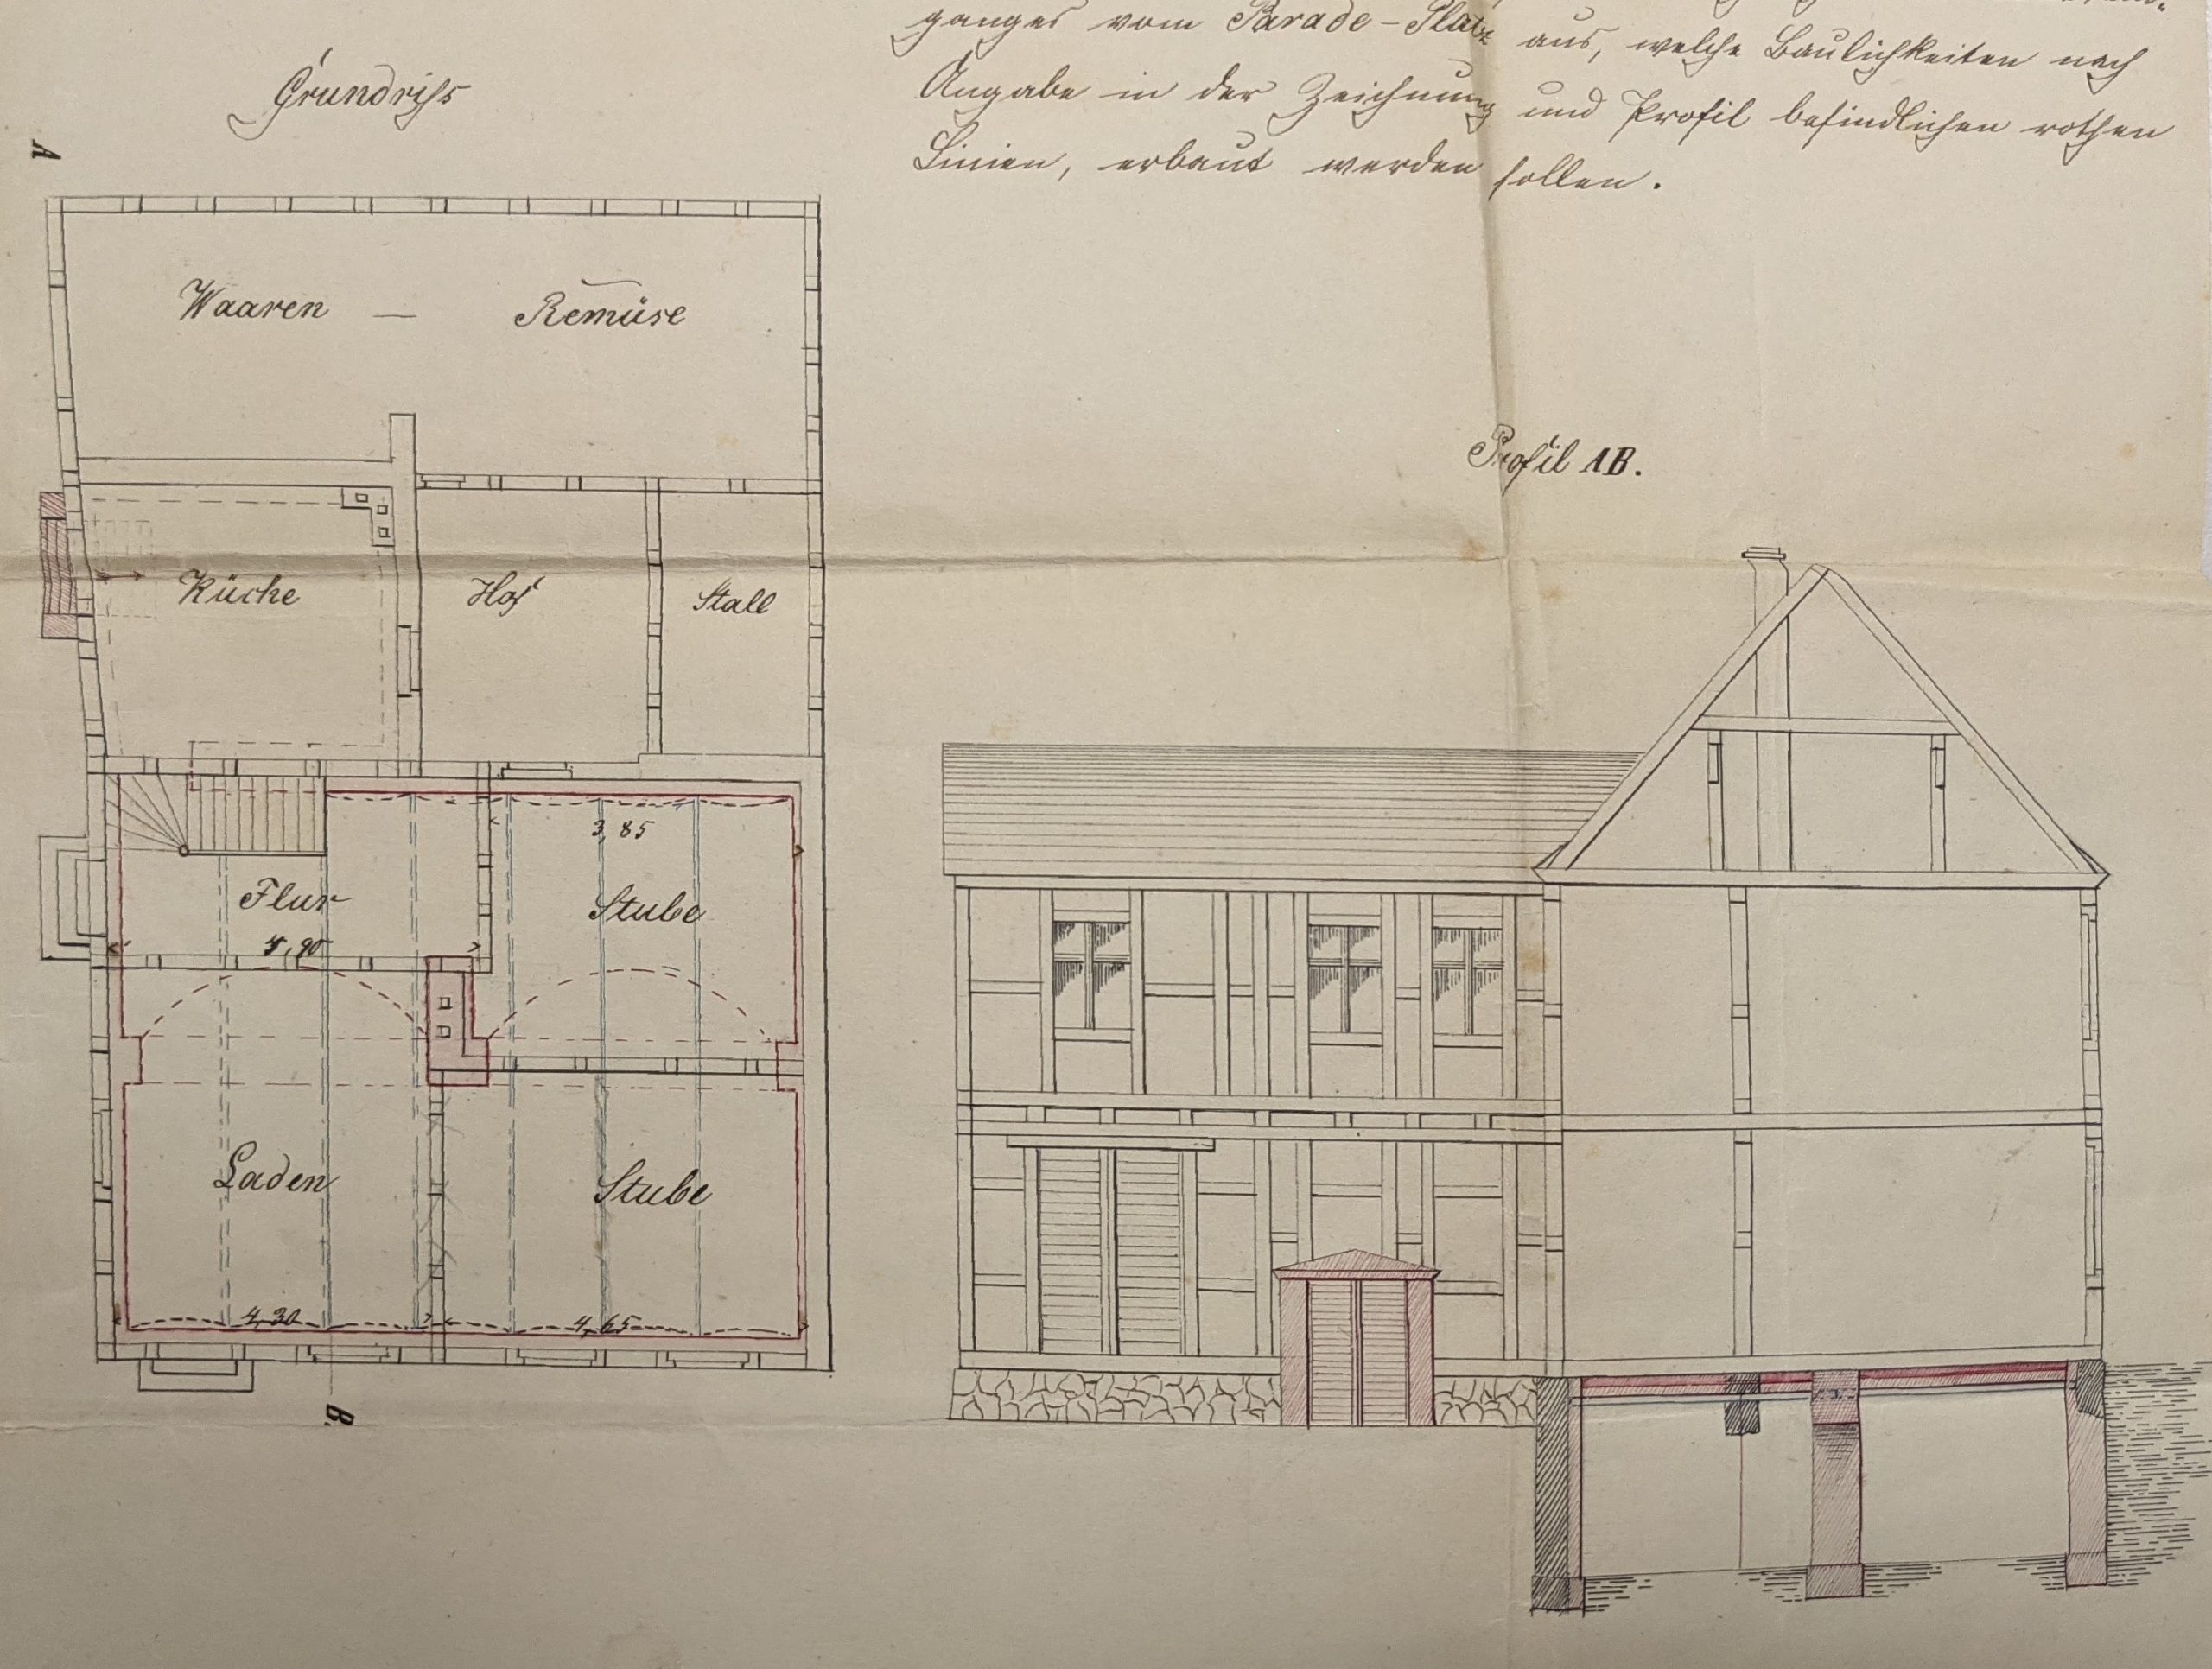 ganges vom Parade-Platz aus, welche Baulichkeiten nach
Angabe in der Zeichnung und Profil befindlichen rothen
Linien, erbaut werden sollen.
Grundriss
A
Waaren — Remüse
Küche
Hof
Stall
3,85
Flur
Stube
4,90
Laden
Stube
4,30
4,65
B.
Profil AB.